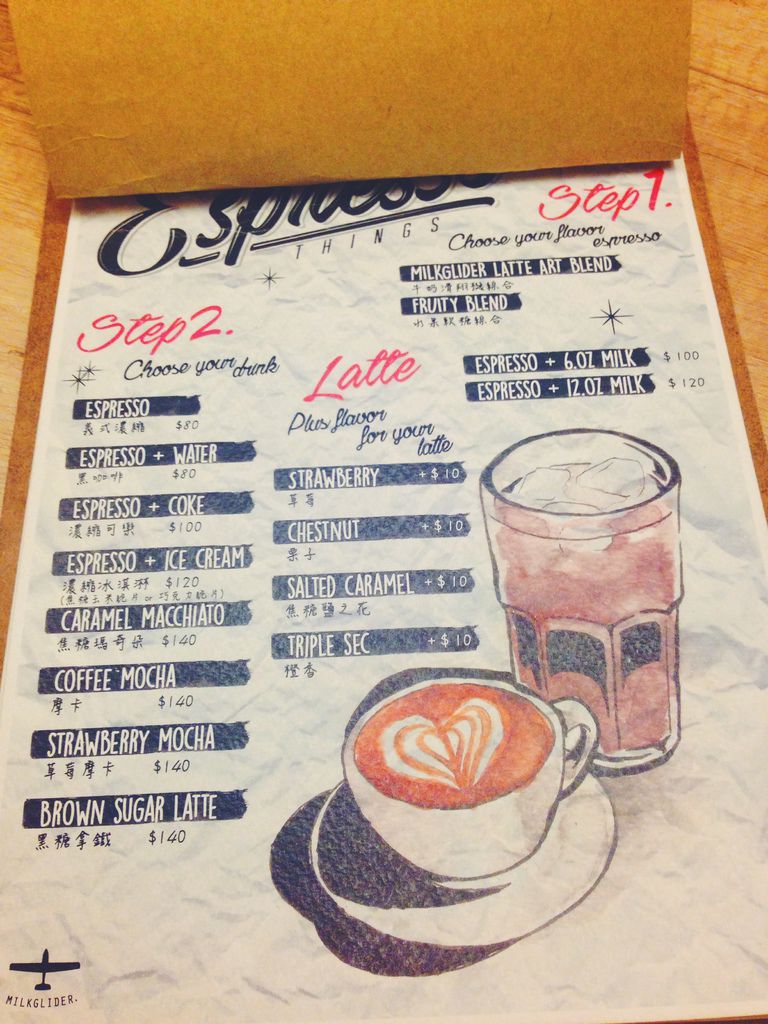 Espresso
THINGS
Step 1.
Choose your flavor
espresso
MILKGLIDER LATTE ART BLEND
牛奶滑翔機綜合
FRUITY BLEND
水果軟糖綜合
Step 2.
Choose your drink
ESPRESSO
義式濃縮 $80
ESPRESSO + WATER
黑咖啡 $80
ESPRESSO + COKE
濃縮可樂 $100
ESPRESSO + ICE CREAM
濃縮冰淇淋 $120
(焦糖玉米脆片 or 巧克力脆片)
CARAMEL MACCHIATO
焦糖瑪奇朵 $140
COFFEE MOCHA
摩卡 $140
STRAWBERRY MOCHA
草莓摩卡 $140
BROWN SUGAR LATTE
黑糖拿鐵 $140
Latte
ESPRESSO + 6.OZ MILK $100
ESPRESSO + 12.OZ MILK $120
Plus flavor
for your
latte
STRAWBERRY +$10
草莓
CHESTNUT +$10
栗子
SALTED CARAMEL +$10
焦糖鹽之花
TRIPLE SEC +$10
橙香
MILKGLIDER.